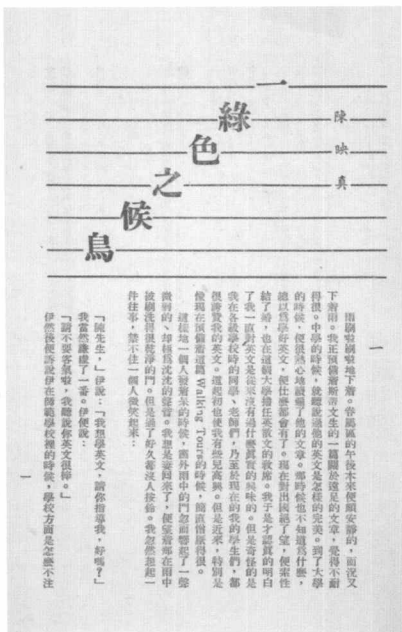 一綠色之候鳥
陳映真
一
雨刷啦刷啦地下着。眷屬區的午後本來便頗安靜的,而況又
下着雨。我正預備着斯蒂文生的一篇關於遠足的文章,覺得不耐
得很。中學的時候,就聽說過他的英文是怎樣的完美。到了大學
的時候,便很熱心地讀遍了他的文章。那時候也不知道為什麼,
總以為學好英文,便什麼都會有了。現在對出國絕了望,便索性
結了婚,也在這個大學擔任英散文的教席。我于是才認真的明白
了我一直對英文是從來沒有過什麼真實的興味的。但是奇怪的是
我在各級學校時的同學、老師們,乃至於現在的我的學生們,都
很讚賞我的英文。這起初也使我有些兒高興。但是近來,特別是
像現在預備着這篇 Walking Tours 的時候,簡直懊惱得很。
這樣地一個人發着呆的時候,窗外雨中的門忽而響起了一聲
微弱的、却極為沈沈的聲音。我想是妻回來了,便望着那在雨中
被刷洗得很乾淨的門。但是過了好久都沒人按鈴。我忽然想起一
件往事,禁不住一個人微笑起來:
「陳先生,」伊說:「我想學英文,請你指導我,好嗎?」
我當然謙虛了一番。伊便說:
「請不要客氣啦,我聽說你英文很棒。」
伊然後便訴說伊在師範學校裡的時候,學校方面是怎麼不注
一